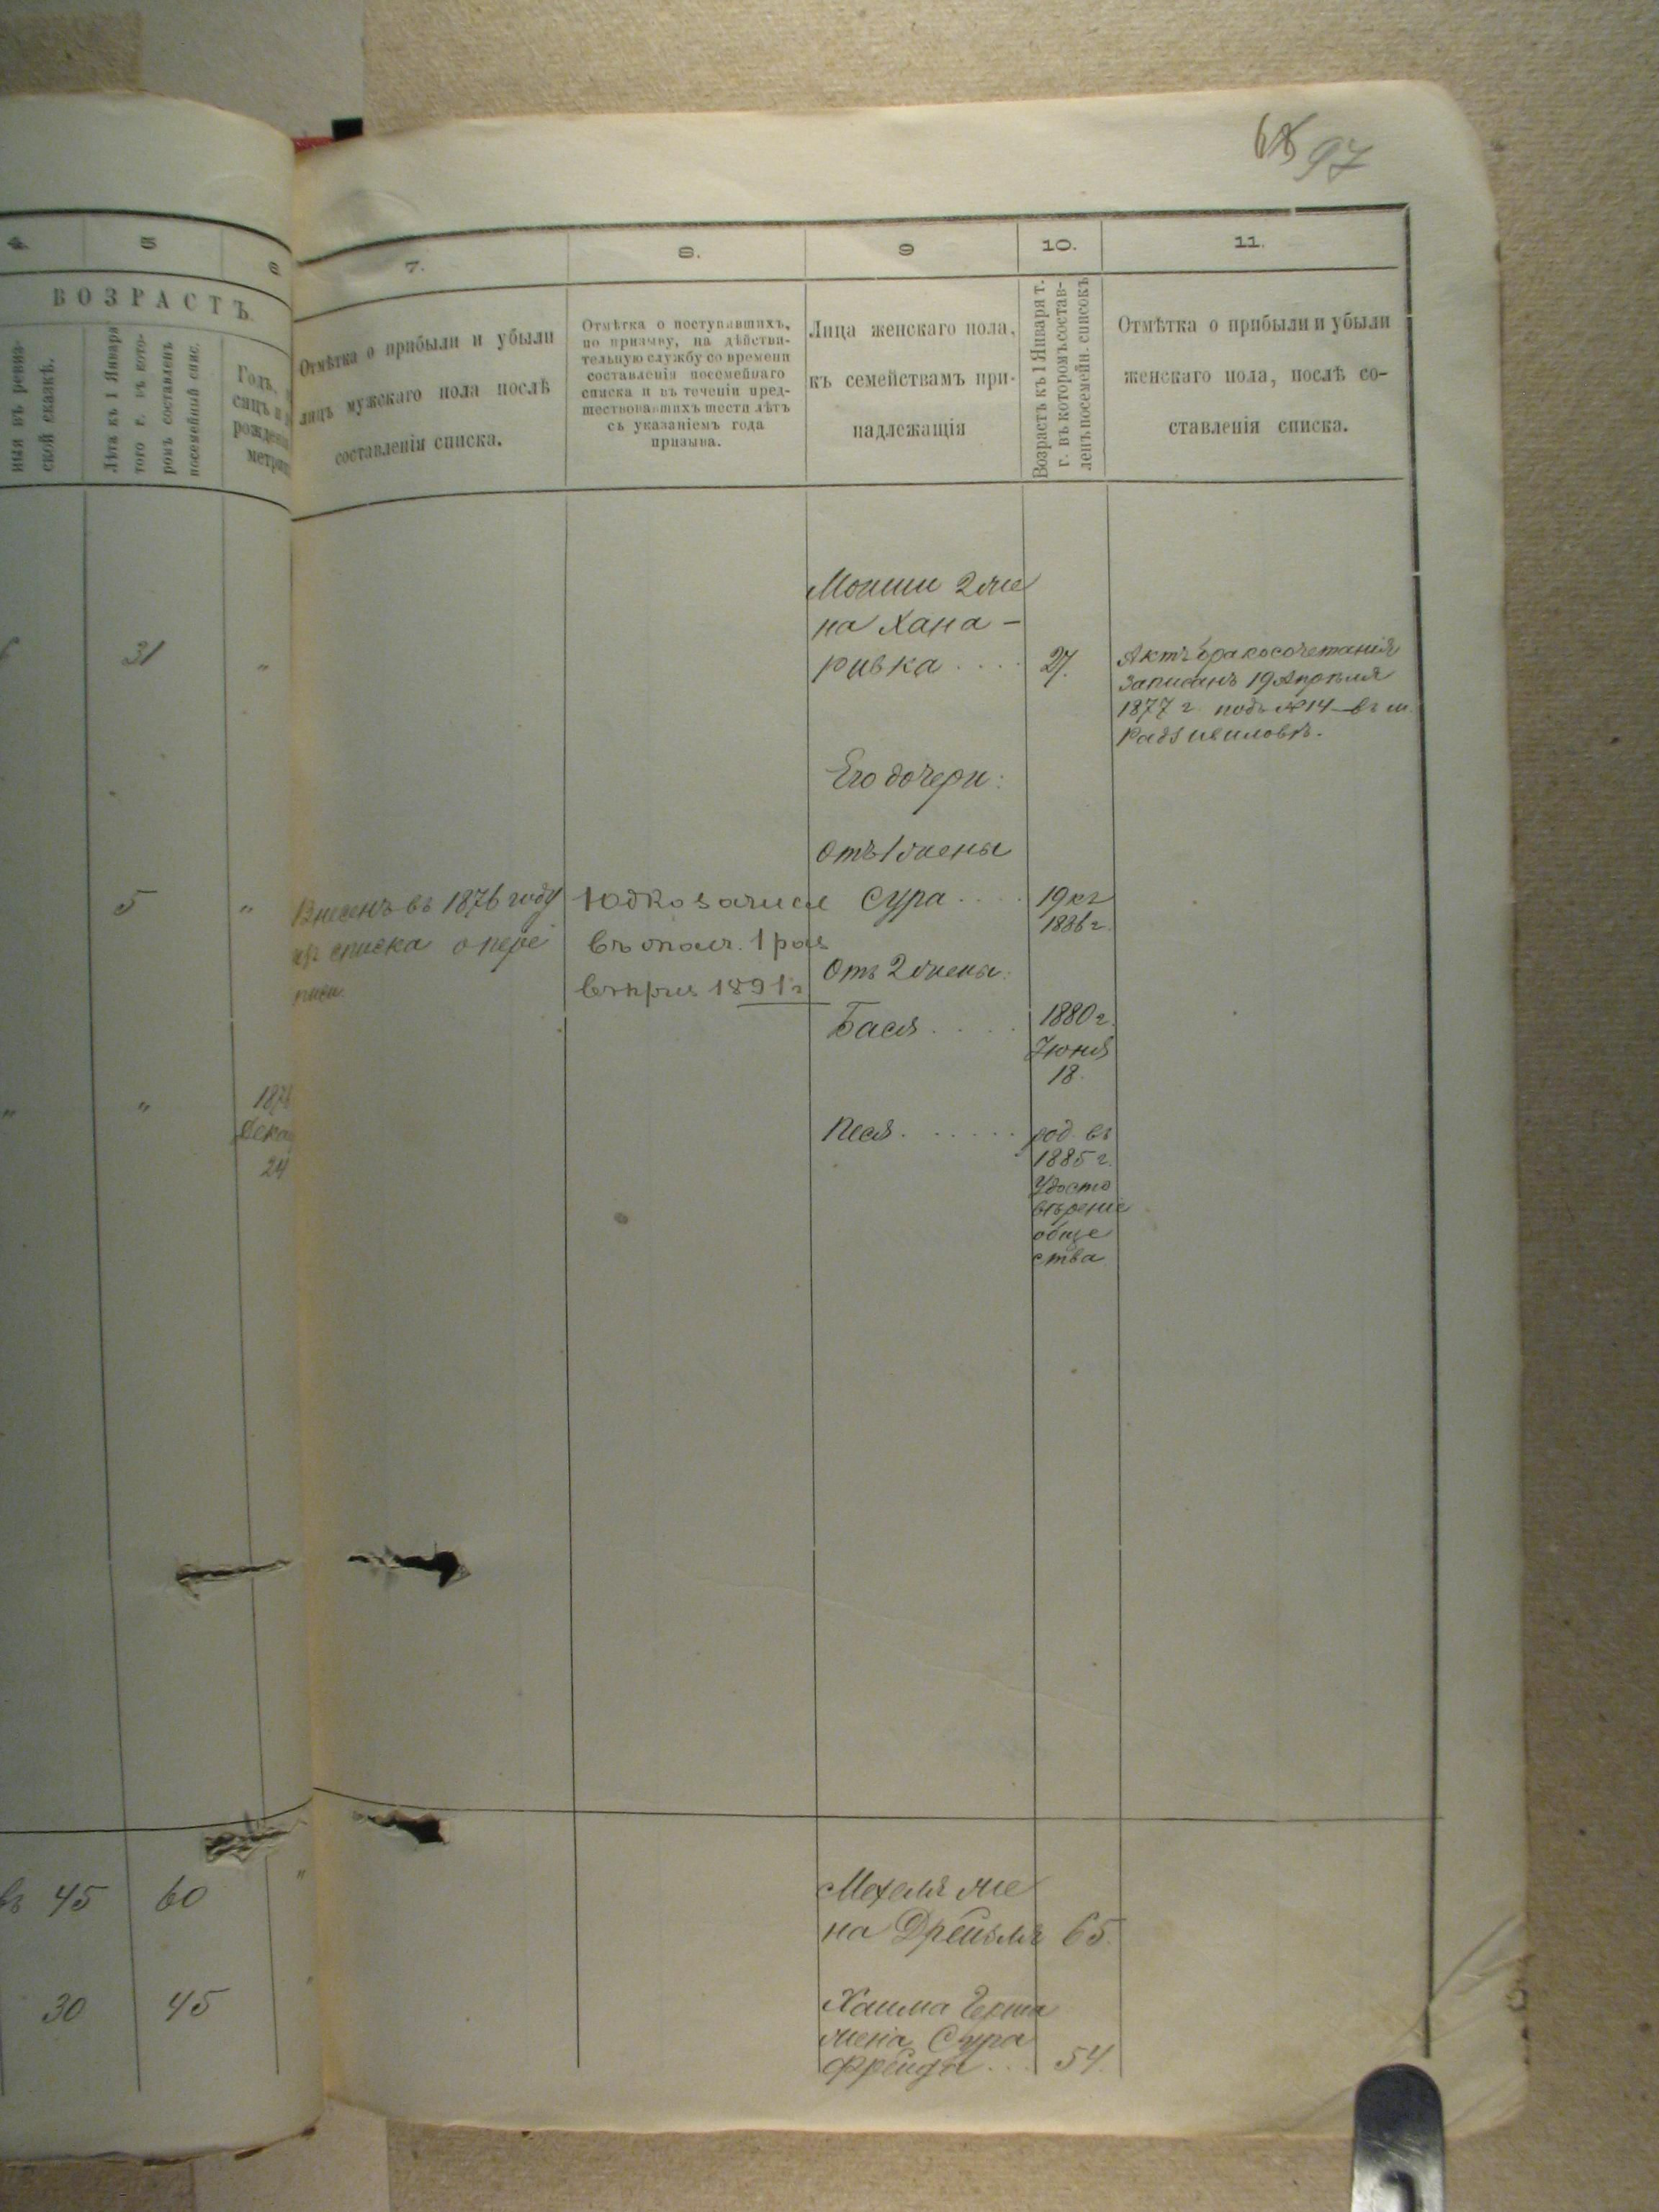 97
4
5
6
7.
8.
9
10.
11.
ВОЗРАСТЪ
ныя въ ревиз-
ской сказкѣ.
Лѣта къ 1 Января
того г. въ кото-
ромъ составленъ
посемейный спис.
Годъ,
рожденія
метрич
Отмѣтка о прибыли и убыли
лицъ мужскаго пола послѣ
составленія списка.
Отмѣтка о поступившихъ,
по призыву, на дѣйстви-
тельную службу со времени
составленія посемейнаго
списка и въ теченіи пред-
шествовавшихъ шести лѣтъ
съ указаніемъ года
призыва.
Лица женскаго пола,
къ семействамъ при-
надлежащія
Возрастъ къ 1 Января т.
г. въ которомъ состав-
ленъ посемейн. списокъ
Отмѣтка о прибыли и убыли
женскаго пола, послѣ со-
ставленія списка.
31
"
Мошки 2 же
на Хана –
Ривка . . . .
27.
Актъ бракосочетанія
записанъ 19 Апрѣля
1877 г. подъ № 14 въ м.
Радзивиловѣ.
Его дочери:
Отъ 1 жены
5
"
Внесенъ въ 1876 году
изъ списка о пере
писи.
Юдко зачисл
въ опол. 1 раз
въ приз 1891 г
Сура . . . .
19 къ
1886 г.
Отъ 2 жены:
Бася . . . .
1880 г.
Іюня
18.
"
"
1876
Дека
24
Песя . . . . . .
род. въ
1885 г.
Удосто
вѣреніе
обще
ства
въ 45
60
"
Мехеля же
на Дрейзля
65.
30
45
Хаима Герша
жена Сура
Фрейда . . .
54.